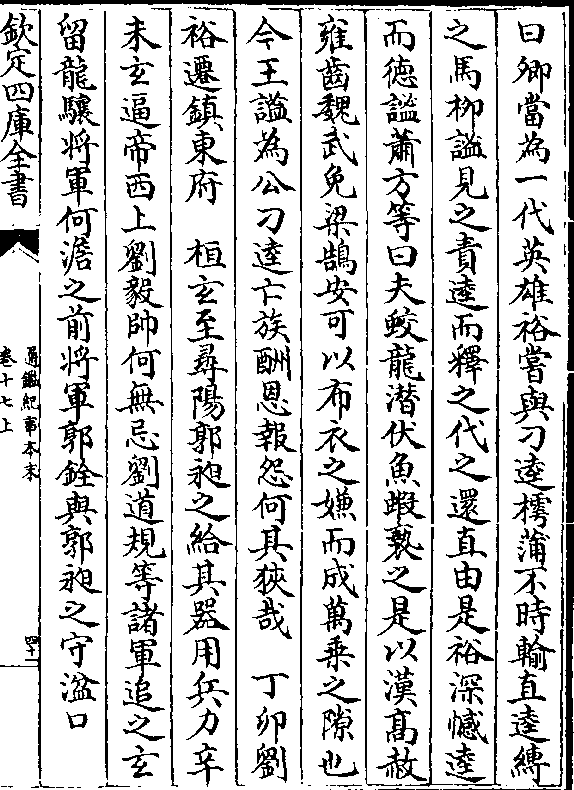 曰卿當為一代英雄裕嘗與刁逵摴蒲不時輸直逵縛
之馬柳謐見之責逵而釋之代之還直由是裕深憾逵
而德謐蕭方等曰夫蛟龍潛伏魚蝦褻之是以漢髙赦
雍齒魏武免梁鵠安可以布衣之嫌而成萬乗之隙也
今王謐為公刁逵亡族酬恩報怨何其狹哉　丁卯劉
裕遷鎮東府　桓玄至尋陽郭昶之給其器用兵力辛
未玄逼帝西上劉毅帥何無忌劉道規等諸軍追之玄
留龍驤將軍何澹之前將軍郭銓與郭昶之守湓口
欽定四庫全書
通鑑紀事本末
卷十七上
四十一